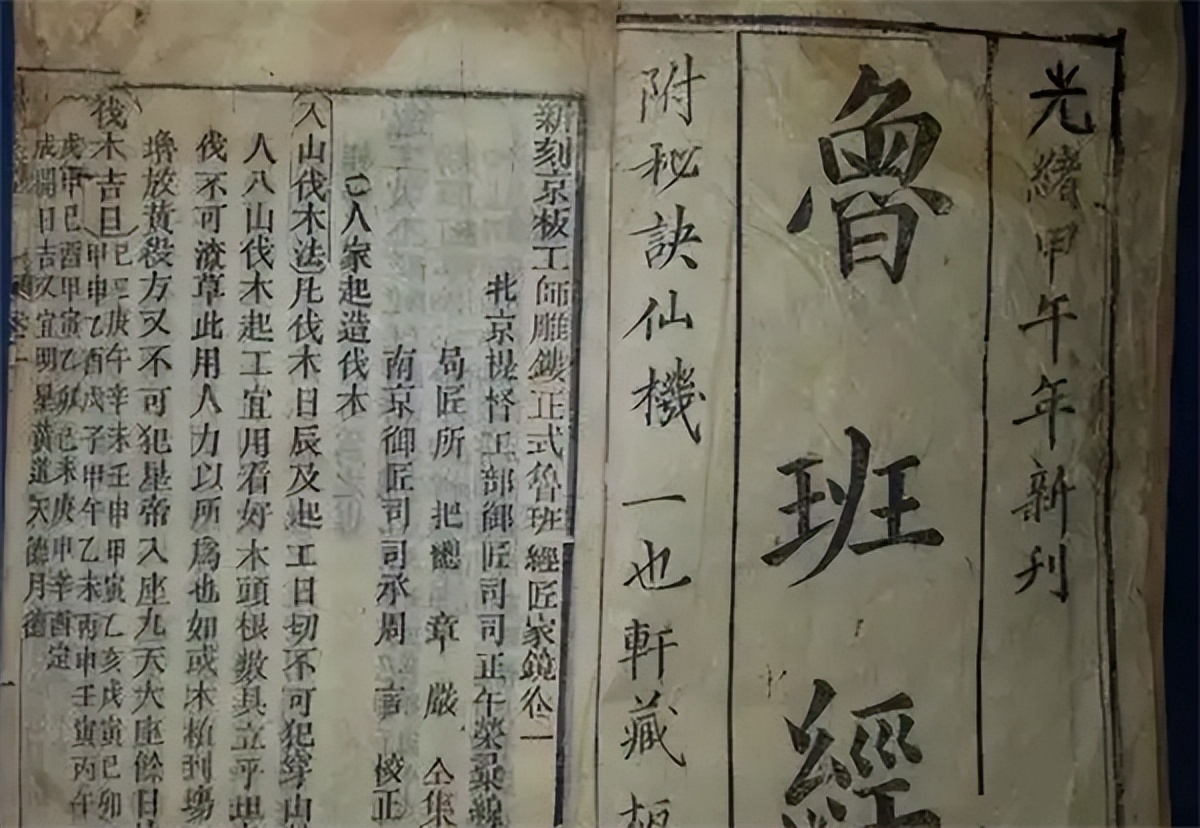 光緒甲午年新刊
魯班經
附秘訣仙機一也軒藏板
新刻京板工師雕鏤正式魯班經匠家鏡卷一
北京提督工部御匠司司正午榮彚編
局匠所把總章嚴仝集
南京御匠司司承周言校正
〇人家起造伐木
入山伐木法凡伐木日辰及起工日切不可犯穿山
人入山伐木起工宜用看好木頭根數具立平坦
伐不可潦草此用人力以所爲也如或木植到塲
堆放黃殺方又不可犯皇帝八座九天大座餘日
伐木吉日己巳庚午辛未壬申甲寅乙亥戊寅己卯
甲申乙酉戊子甲午乙未丙申壬寅丙午
戊申己酉甲寅乙卯己未庚申辛酉定
成開日吉又宜明星黃道天德月德